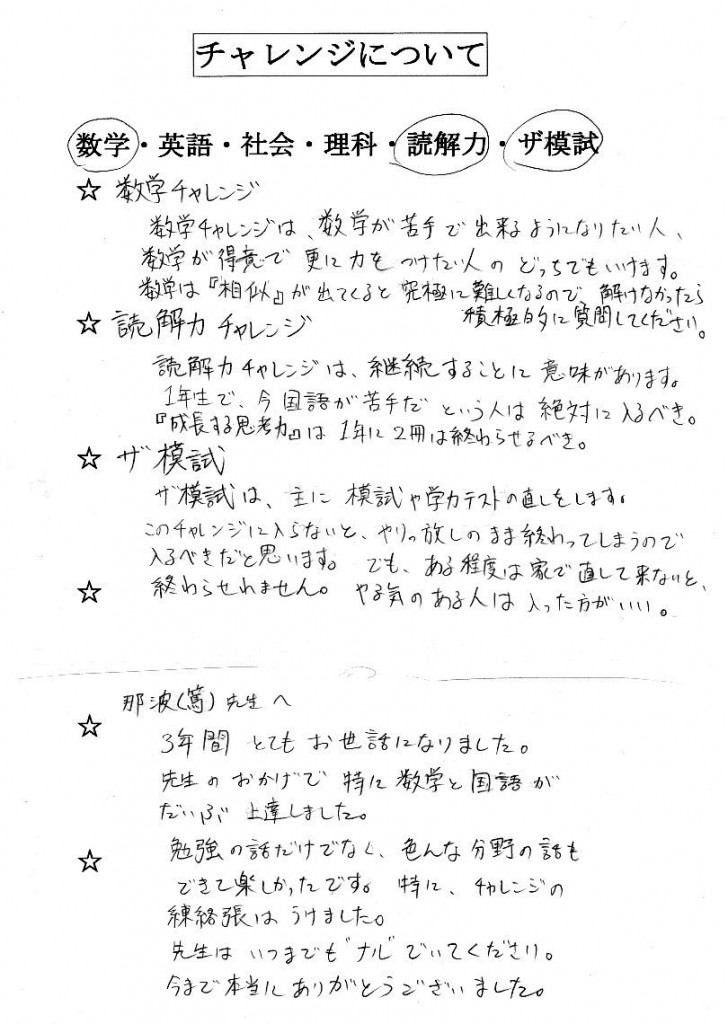 チャレンジについて
数学・英語・社会・理科・読解力・ザ模試
☆ 数学チャレンジ
数学チャレンジは、数学が苦手で出来るようになりたい人、
数学が得意で更に力をつけたい人のどっちでもいけます。
数学は『相似』が出てくると究極に難しくなるので、解けなかったら
積極的に質問してください。
☆ 読解力チャレンジ
読解力チャレンジは、継続することに意味があります。
1年生で、今国語が苦手だという人は絶対に入るべき。
『成長する思考力』は1年に2冊は終わらせるべき。
☆ ザ模試
ザ模試は、主に模試や学力テストの直しをします。
このチャレンジに入らないと、やりっ放しのまま終わってしまうので
入るべきだと思います。でも、ある程度は家で直して来ないと、
☆ 終わらせれません。やる気のある人は入った方がいい。
那波(篤)先生へ
☆
3年間とてもお世話になりました。
先生のおかげで特に数学と国語が
だいぶ上達しました。
☆ 勉強の話だけでなく、色んな分野の話も
できて楽しかったです。特に、チャレンジの
練絡張はうけました。
先生はいつまでも“ナル”でいてください。
今まで本当にありがとうございました。